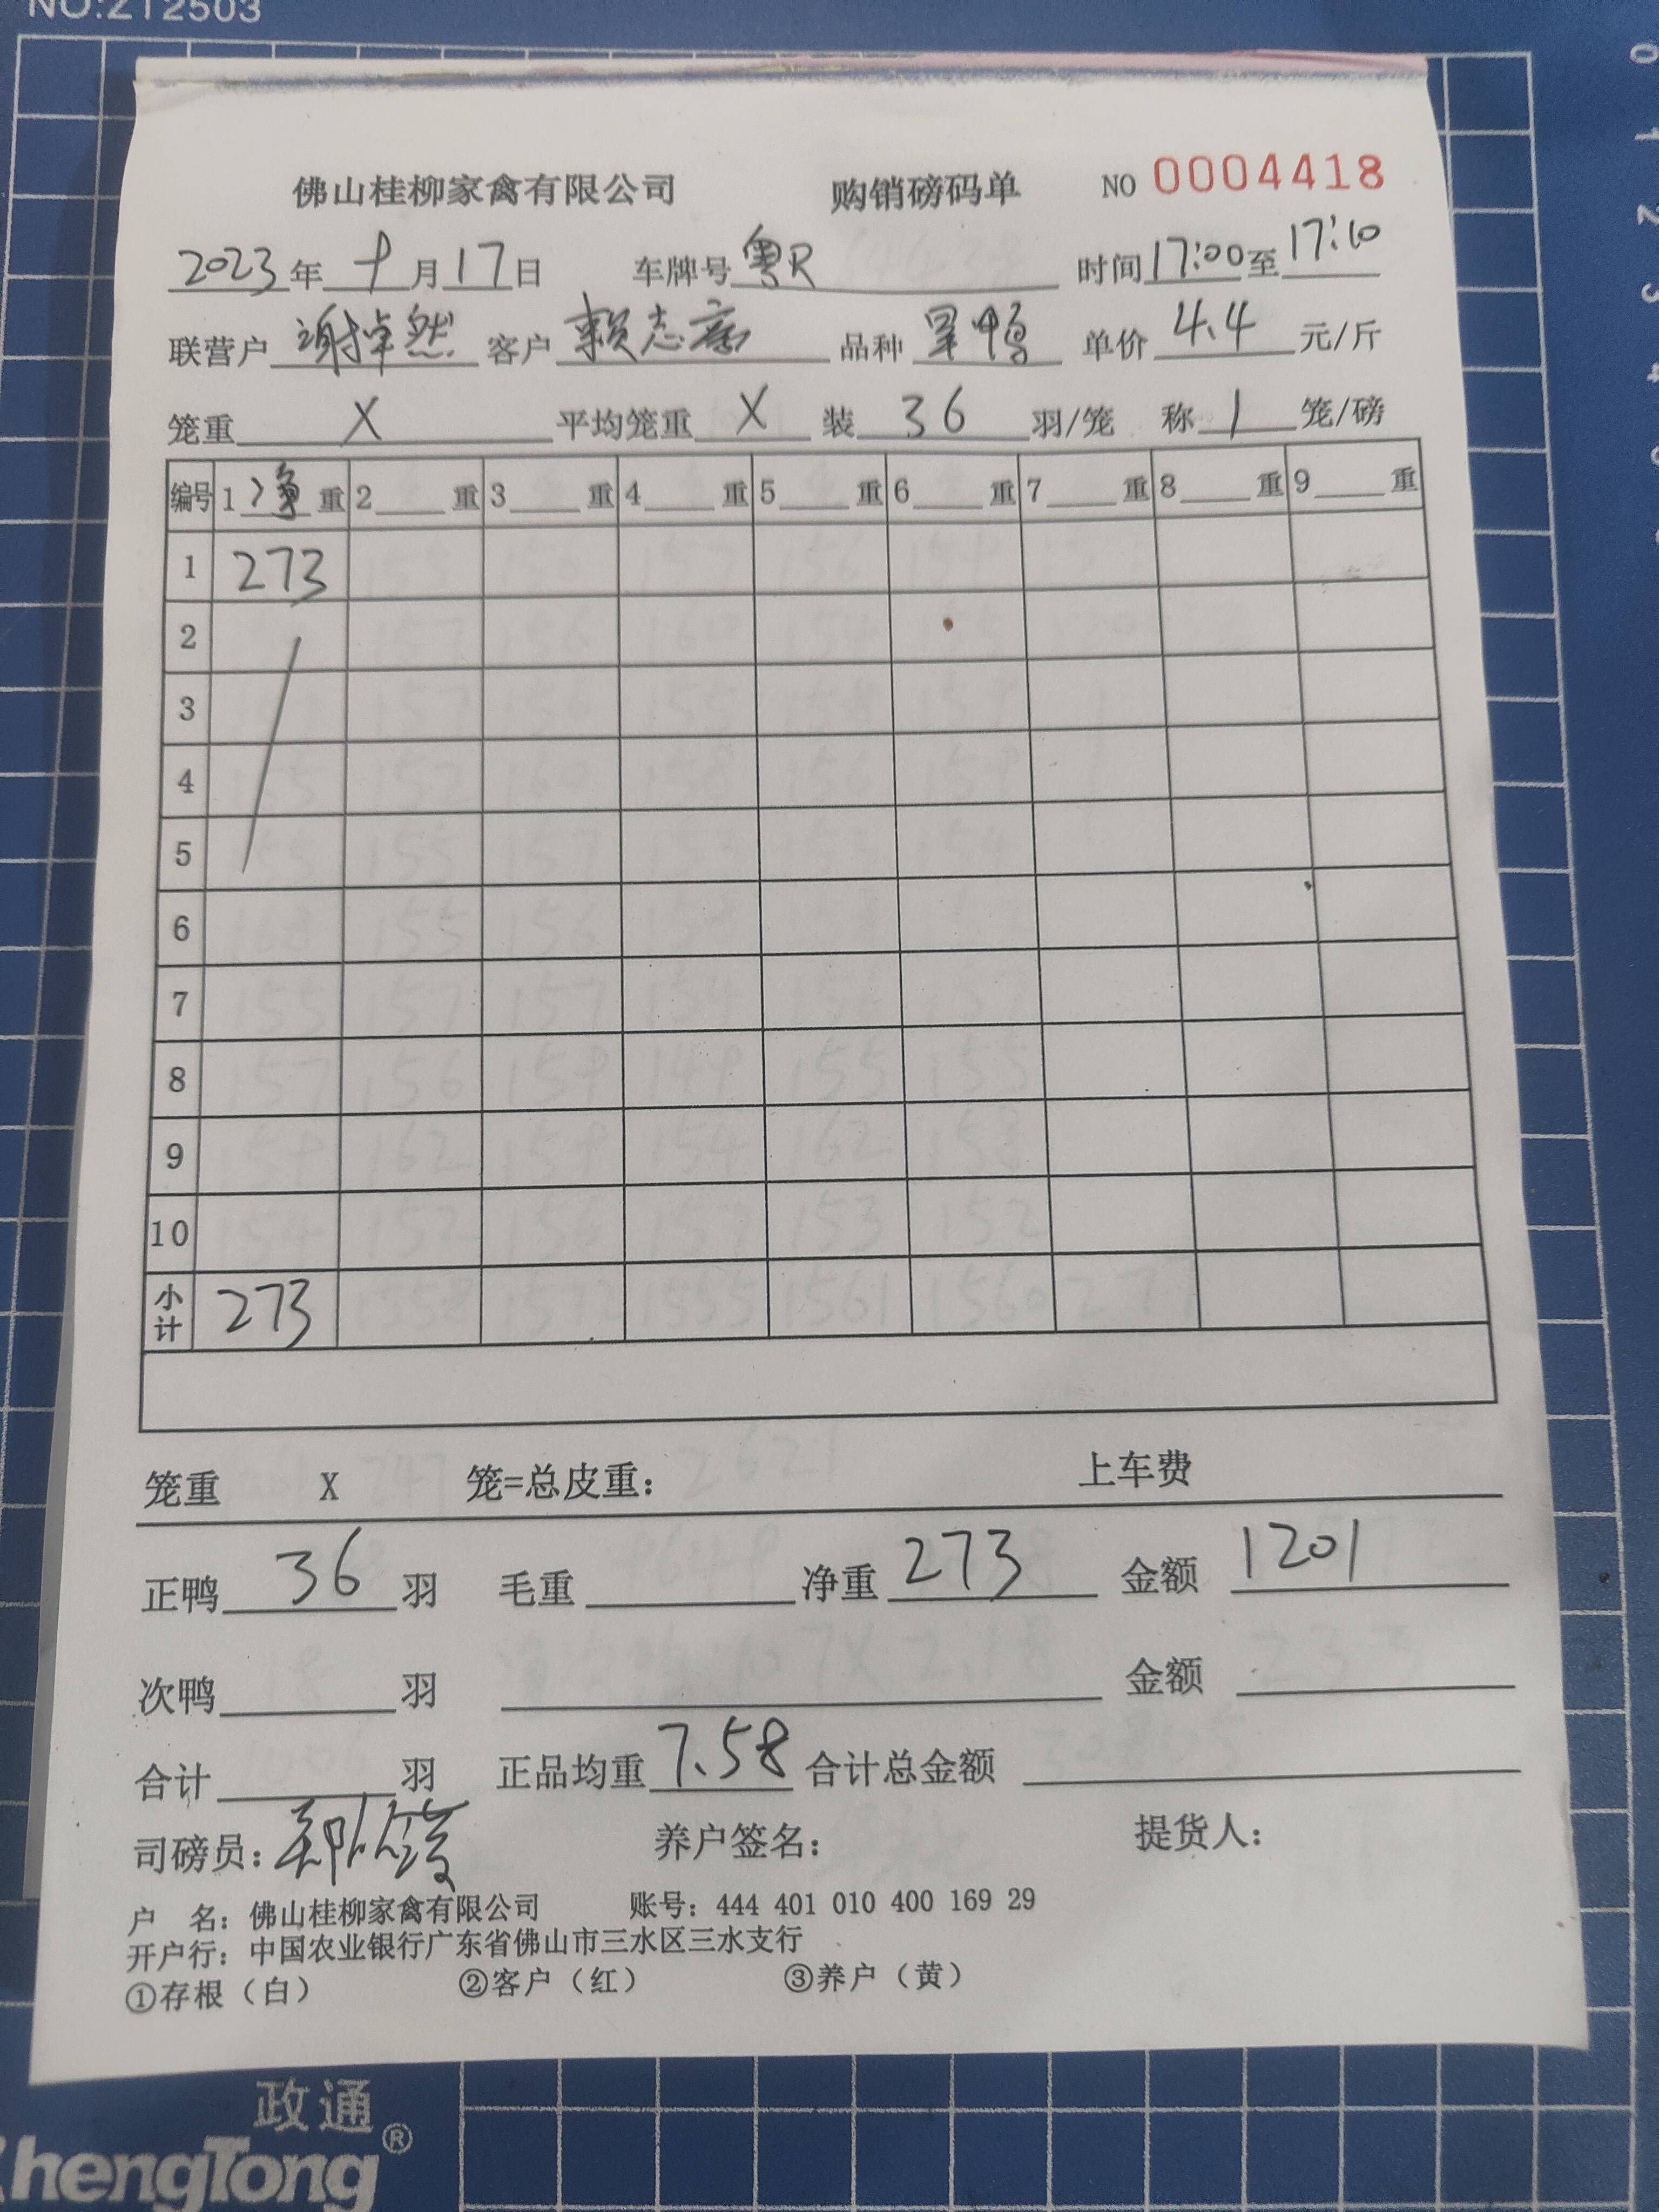 NO:ZT2503
佛山桂柳家禽有限公司 购销磅码单 NO 0004418
2023年十月17日 车牌号粤R 时间17:00至17:10
联营户 谢掉然 客户 赖志高 品种 单价 4.4 元/斤
笼重 X 平均笼重 X 装 36 羽/笼 称 1 笼/磅
编号 1 净 重 2 重 3 重 4 重 5 重 6 重 7 重 8 重 9 重
1 273
2
3
4
5
6
7
8
9
10
小计 273
笼重 X 笼=总皮重: 上车费
正鸭 36 羽 毛重 净重 273 金额 1201
次鸭 羽 金额
合计 羽 正品均重 7.58 合计总金额
司磅员: 养户签名: 提货人:
户 名: 佛山桂柳家禽有限公司 账号: 444 401 010 400 169 29
开户行: 中国农业银行广东省佛山市三水区三水支行
①存根（白） ②客户（红） ③养户（黄）
政通®
hengTong
0 1 2 3 4